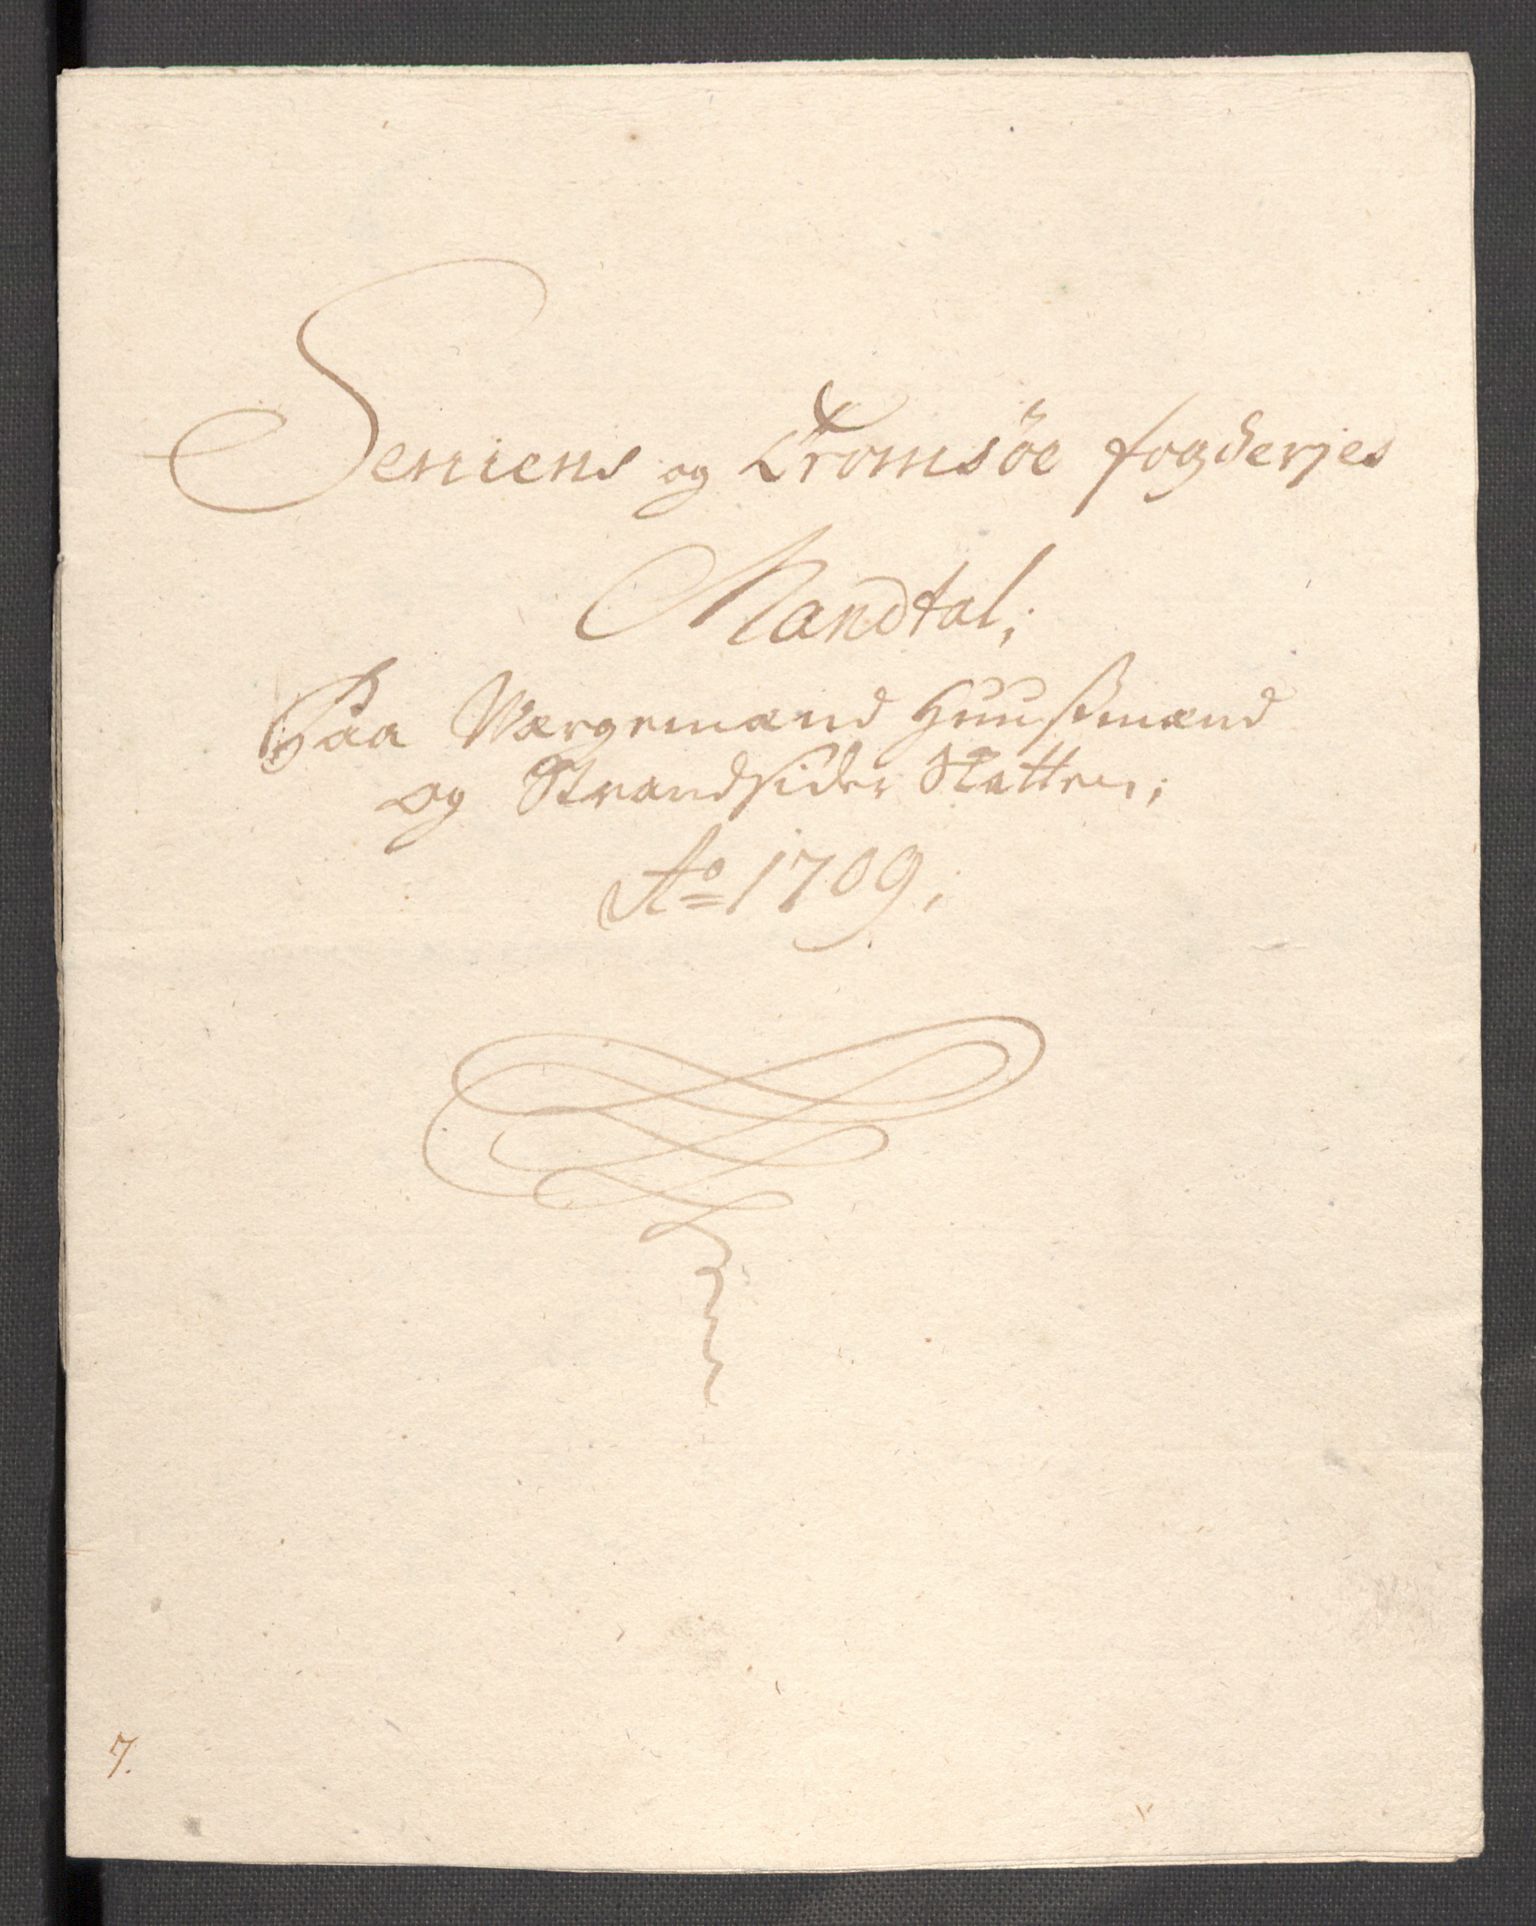 Seniens og Tromsøe fogderjes
Mandtal;
PaaVærgemænd Huusmænd
og Strandsider Skatten;
Ao 1709;
7.